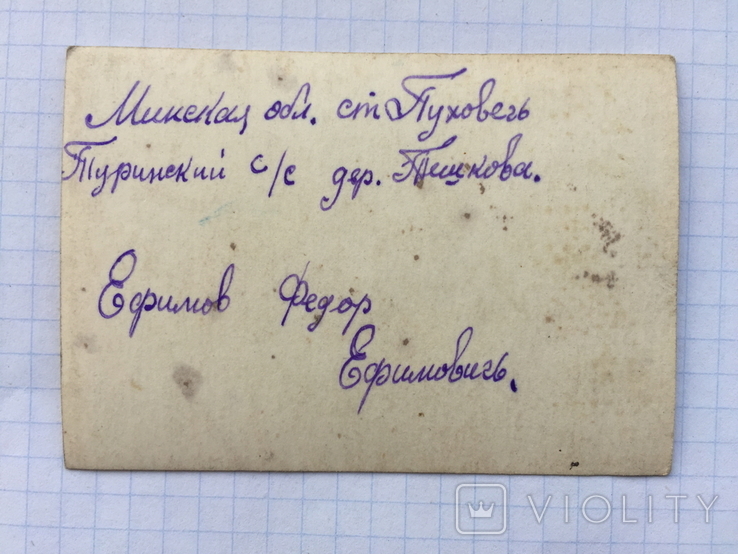 Минская обл. ст Пуховечь
Туринский с/с дер. Тешкова.
Ефимов Федор
Ефимовичь.
VIOLITY